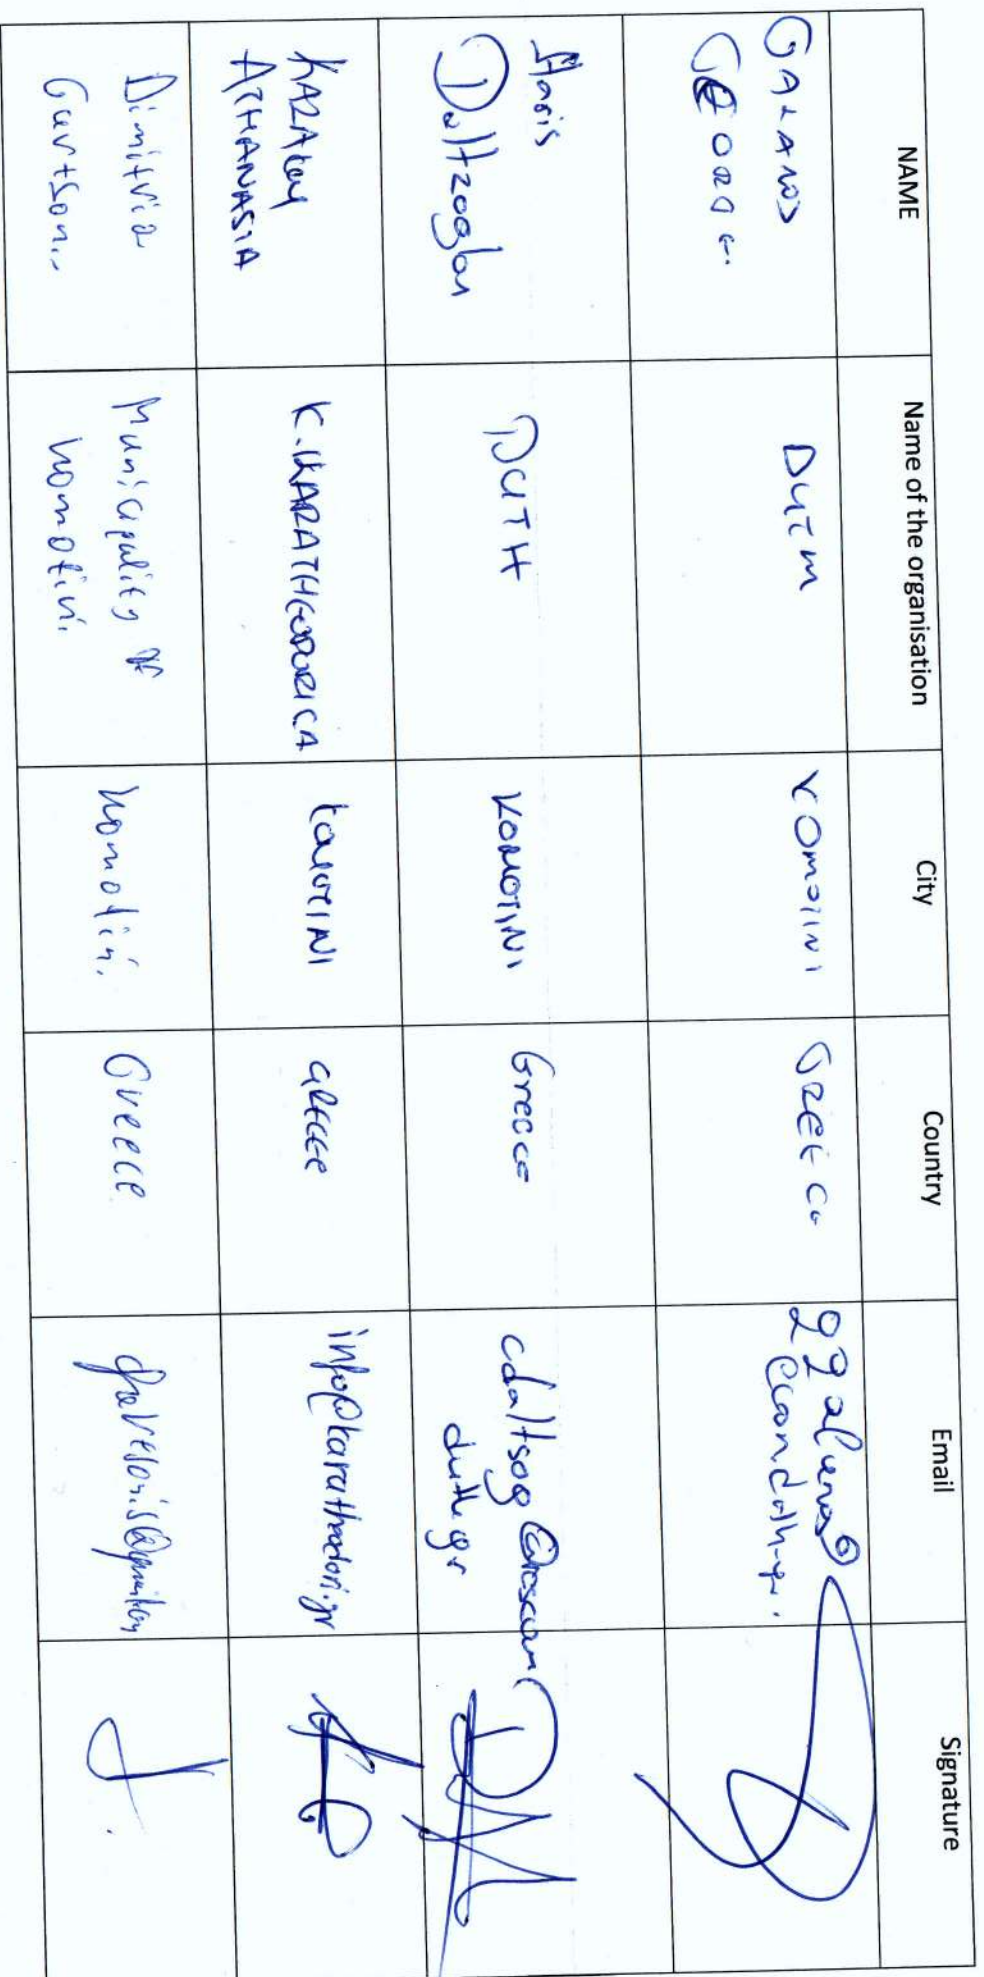 NAME Name of the organisation City Country Email Signature
GALANOS
GEORGE.
DUTH
KOMOTINI
GREECE
ggalanos@
econ.duth.gr.
Haris
Daltzoglou
DUTH
KOMOTINI
Greece
duth.gr
ATHANASIA
K. KARATHEODORI CA
KOMOTINI
GREECE
info@karatheodori.gr
Dimitria
Municipality of
Komotini.
Komotini.
Greece